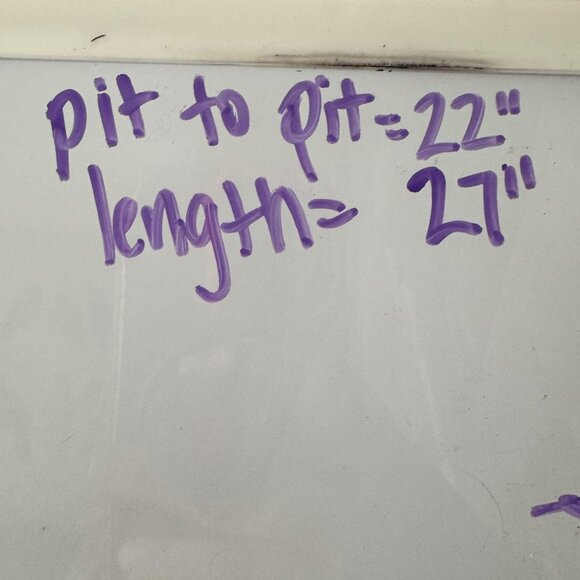 pit to pit = 22"
length = 27"